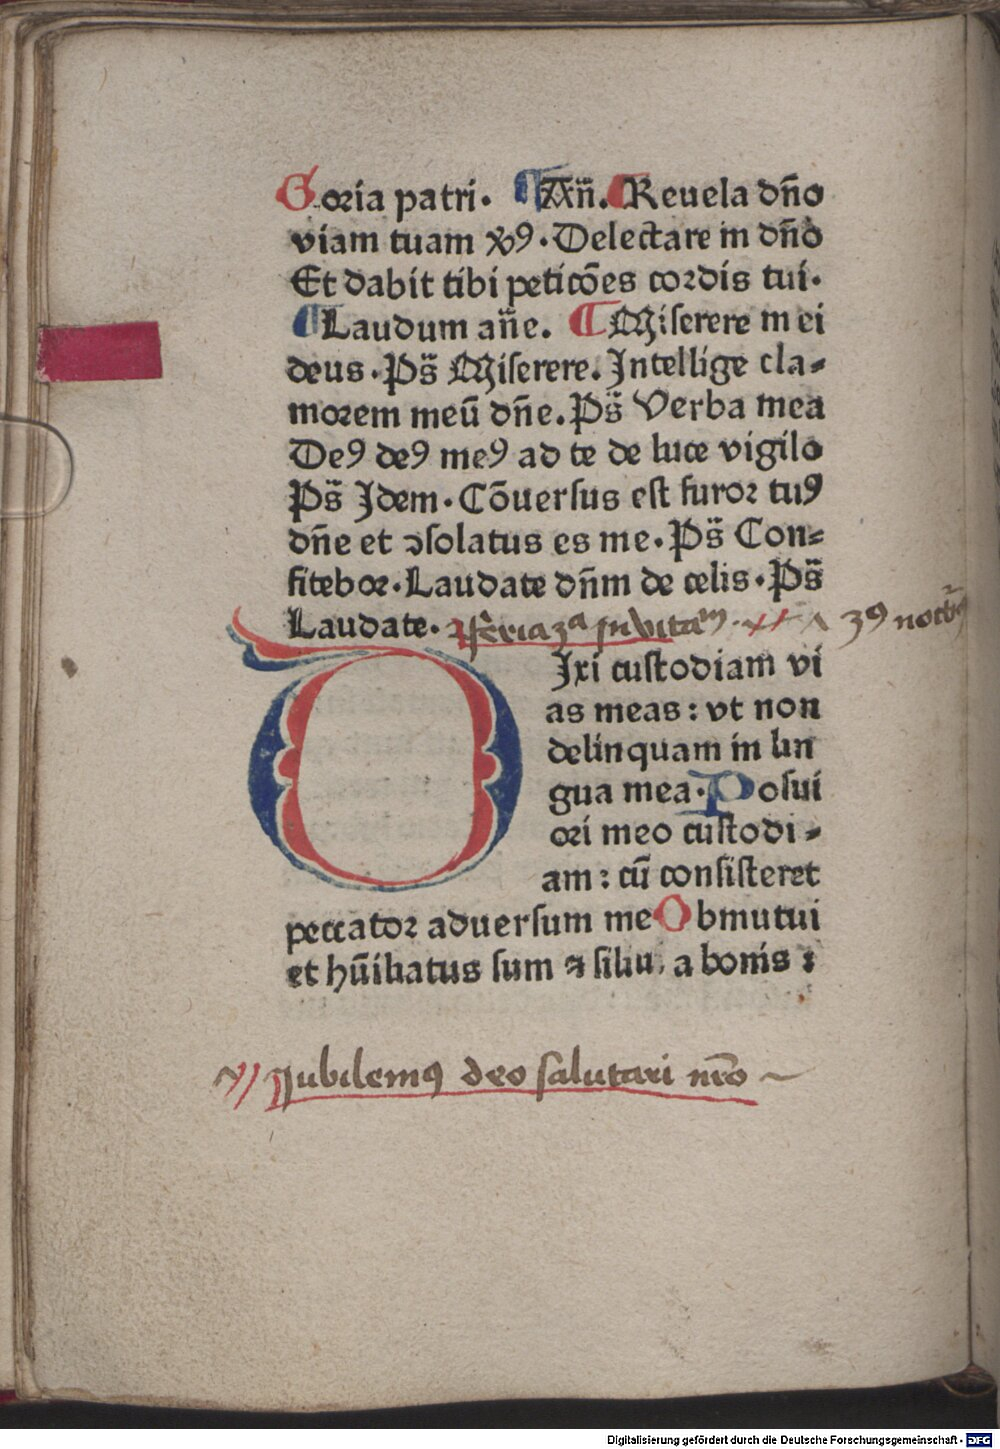 Goria patri. An̄. Reuela dn̄o
viam tuam xp̄ꝯ. Delectare in dn̄o
Et dabit tibi peticōes cordis tui.
Laudum an̄e. Miserere mei
deus. Ps̄ Miserere. Intellige cla-
morem meū dn̄e. Ps̄ Verba mea
Deꝯ deꝯ meꝯ ad te de luce vigilo
Ps̄ Idem. Cōuersus est furor tuꝯ
dn̄e et ↄsolatus es me. Ps̄ Con-
fitebor. Laudate dn̄m de celis. Ps̄
Laudate. feria 3ᵃ Inuitaᵐ 3ꝯ noctꝰ
DIxi custodiam vi
as meas: vt non
delinquam in lin
gua mea. Posui
ori meo custodi-
am: cū consisteret
peccator aduersum me Obmutui
et hūiliatus sum ⁊ silui a bonis:
Jubilemꝯ deo salutari nr̄o
Digitalisierung gefördert durch die Deutsche Forschungsgemeinschaft - DFG